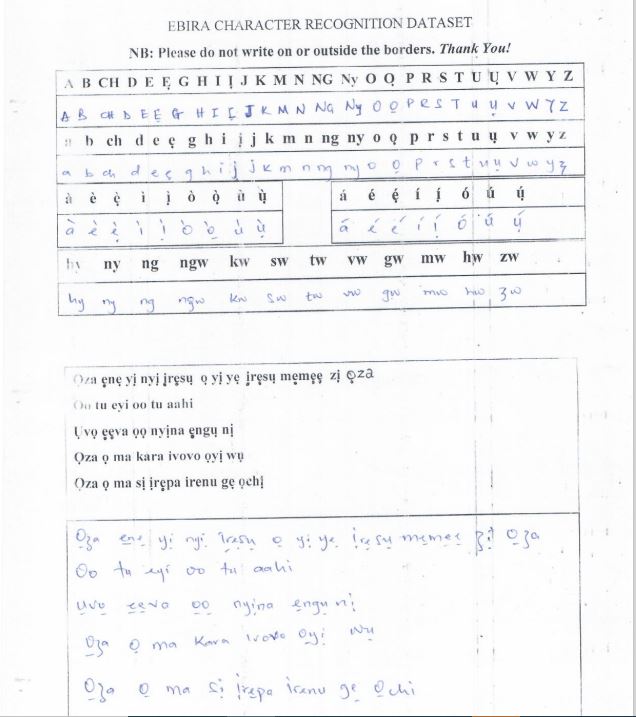 EBIRA CHARACTER RECOGNITION DATASET
NB: Please do not write on or outside the borders. Thank You!
A B CH D E Ẹ G H I Ị J K M N NG Ny O Ọ P R S T U Ụ V W Y Z
A B CH D E Ẹ G H I Ị J K M N NG Ny O Ọ P R S T U Ụ V W Y Z
a b ch d e ẹ g h i ị j k m n ng ny o ọ p r s t u ụ v w y z
a b ch d e ẹ g h i ị j k m n ng ny o ọ p r s t u ụ v w y z
à è ẹ̀ ì ị̀ ò ọ̀ ù ụ̀ á é ẹ́ í ị́ ó ú ụ́
à è ẹ̀ ì ị̀ ò ọ̀ ù ụ̀ á é ẹ́ í ị́ ó ú ụ́
hy ny ng ngw kw sw tw vw gw mw hw zw
hy ny ng ngw kw sw tw vw gw mw hw zw
Ọza ẹnẹ yị nyị ịrẹsụ ọ yị yẹ ịrẹsụ mẹmẹẹ zị ọza
Oo tu eyi oo tu aahi
Ụvọ ẹẹva ọọ nyịna ẹngụ nị
Ọza ọ ma kara ivovo ọyị wụ
Ọza ọ ma sị ịrẹpa irenu gẹ ọchị
Ọza ẹnẹ yị nyị ịrẹsụ ọ yị yẹ ịrẹsụ mẹmẹẹ zị Ọza
Oo tu eyi oo tu aahi
ụvọ ẹẹva ọọ nyịna ẹngụ nị
Ọza Ọ ma Kara ivovo Ọyị wụ
Ọza Ọ ma sị ịrẹpa irenu gẹ Ọchi